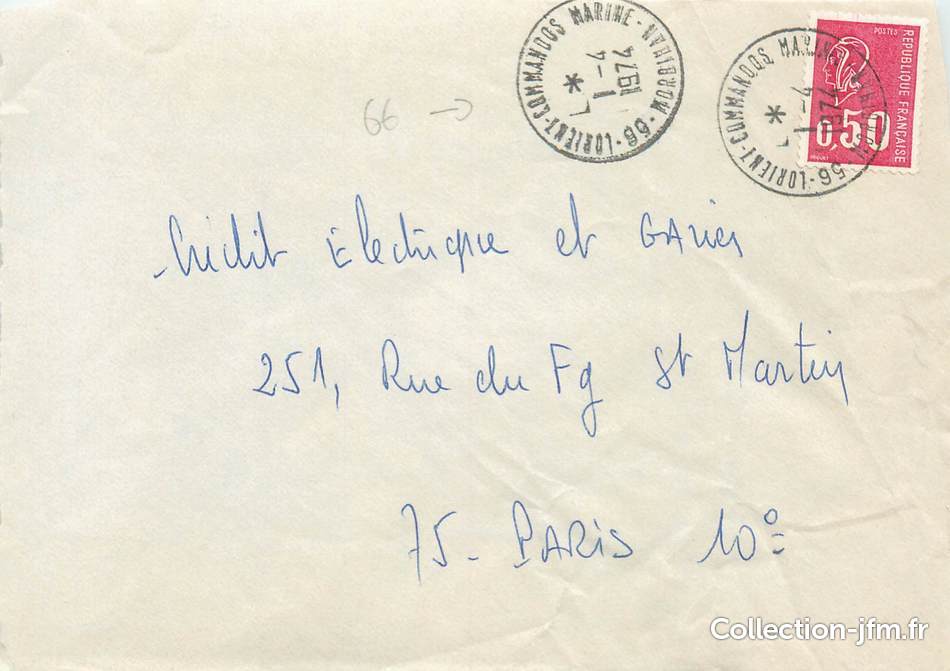 LORIENT-COMMANDOS MARINE - MORBIHAN - 56 -
* 
1-4
1974
LORIENT-COMMANDOS MARINE
56 -
*
1-4
1974
POSTES
REPUBLIQUE FRANÇAISE
0,50
66 →
Crédit Electrique et GAZIER
251, Rue du Fg St Martin
75 - PARIS 10º
Collection-jfm.fr